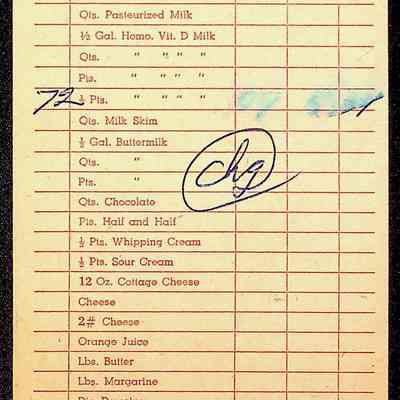 Qts. Pasteurized Milk
½ Gal. Homo. Vit. D Milk
Qts. " " " "
Pts. " " " "
72 ½ Pts. " " " "
Qts. Milk Skim
½ Gal. Buttermilk
Qts. "
Pts. "
chg
Qts. Chocolate
Pts. Half and Half
½ Pts. Whipping Cream
½ Pts. Sour Cream
12 Oz. Cottage Cheese
Cheese
2# Cheese
Orange Juice
Lbs. Butter
Lbs. Margarine